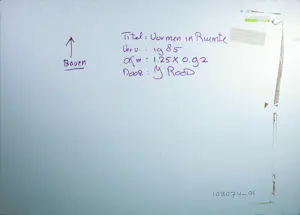 Titel: Vormen in Ruimte
Verv.: 1985
Afm: 1.25 x 0.92
Door: Y Rood
Boven
108074-01